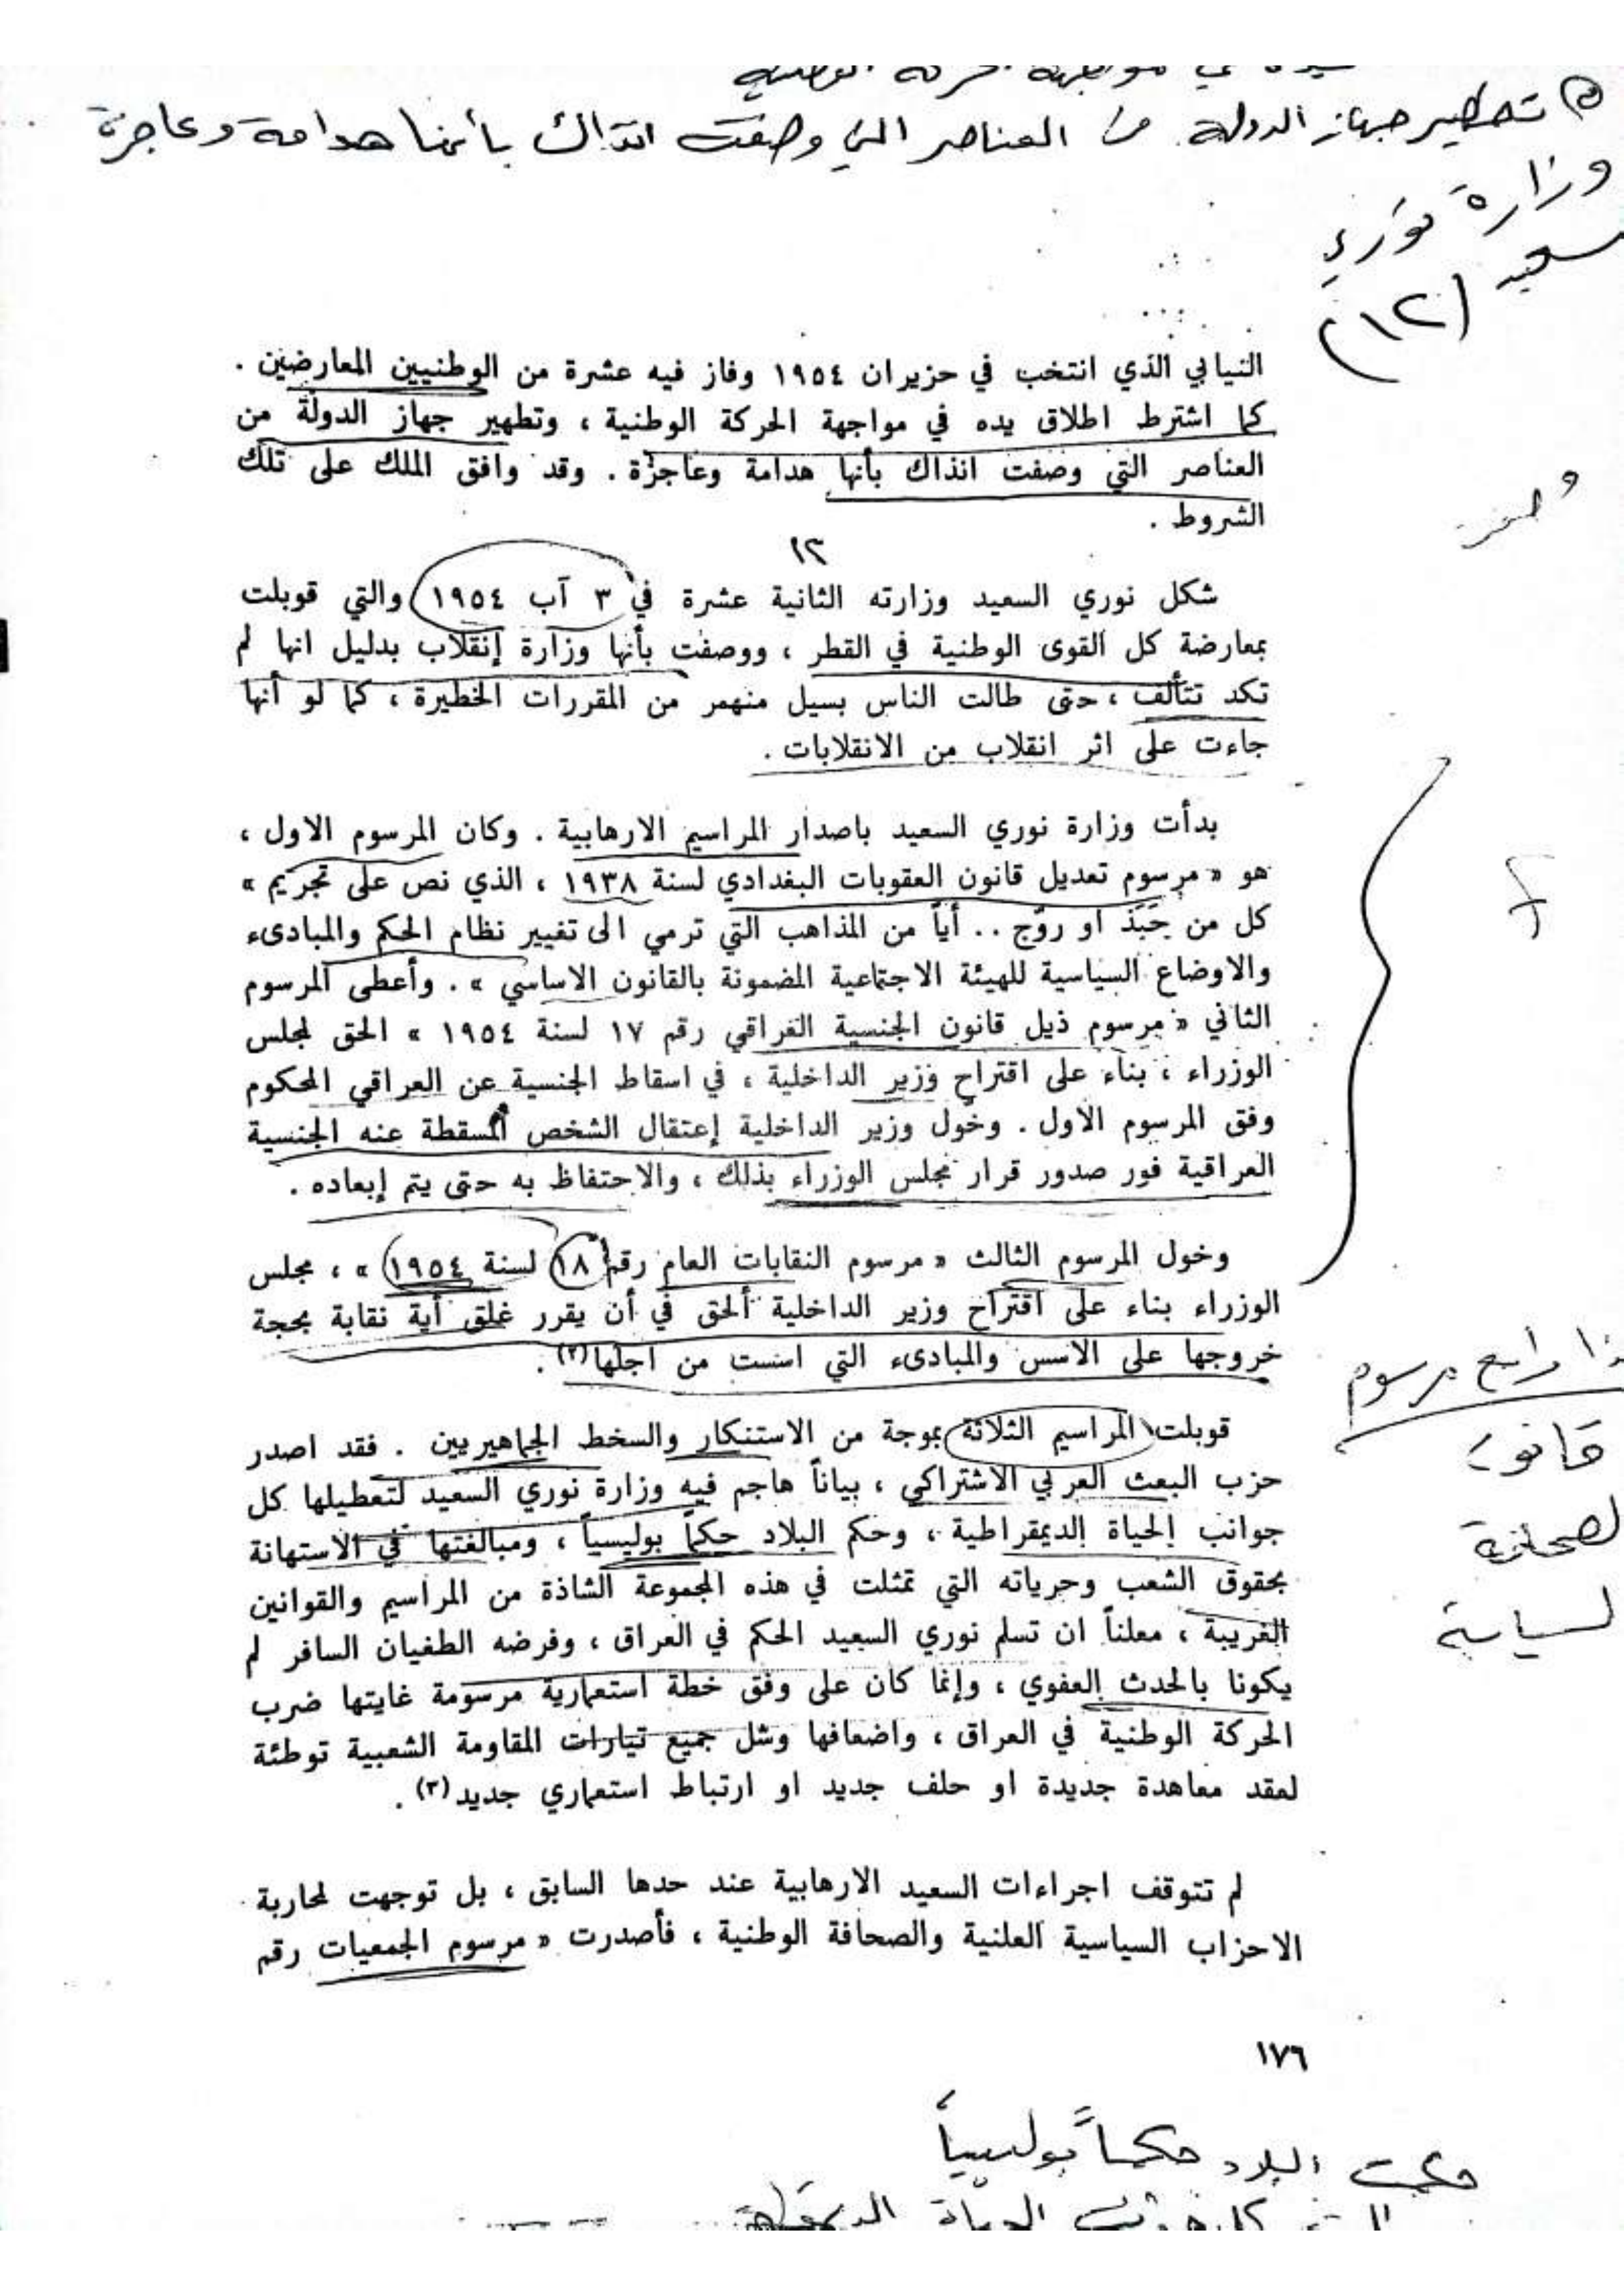 تطهير جهاز الدولة من العناصر التي وصفت انذاك بأنها هدامة وعاجزة
وزارة نوري
سعيد (١٢)
النيابي الذي انتخب في حزيران ١٩٥٤ وفاز فيه عشرة من الوطنيين المعارضين .
كما اشترط اطلاق يده في مواجهة الحركة الوطنية ، وتطهير جهاز الدولة من
العناصر التي وصفت انذاك بأنها هدامة وعاجزة . وقد وافق الملك على تلك
الشروط .
١٢
شكل نوري السعيد وزارته الثانية عشرة في ٣ آب ١٩٥٤ والتي قوبلت
بمعارضة كل القوى الوطنية في القطر ، ووصفت بأنها وزارة إنقلاب بدليل انها لم
تكد تتألف ، حتى طالت الناس بسيل منهمر من المقررات الخطيرة ، كما لو أنها
جاءت على اثر انقلاب من الانقلابات .
بدأت وزارة نوري السعيد باصدار المراسيم الارهابية . وكان المرسوم الاول ،
هو « مرسوم تعديل قانون العقوبات البغدادي لسنة ١٩٣٨ ، الذي نص على تجريم »
كل من حَبَّذَ او روّج .. أياً من المذاهب التي ترمي الى تغيير نظام الحكم والمبادىء
والاوضاع السياسية للهيئة الاجتماعية المضمونة بالقانون الاساسي » . وأعطى المرسوم
الثاني « مرسوم ذيل قانون الجنسية العراقي رقم ١٧ لسنة ١٩٥٤ » الحق لمجلس
الوزراء ، بناء على اقتراح وزير الداخلية ، في اسقاط الجنسية عن العراقي المحكوم
وفق المرسوم الاول . وخول وزير الداخلية إعتقال الشخص المسقطة عنه الجنسية
العراقية فور صدور قرار مجلس الوزراء بذلك ، والاحتفاظ به حتى يتم إبعاده .
وخول المرسوم الثالث « مرسوم النقابات العام رقم ١٨ لسنة ١٩٥٤ » ، مجلس
الوزراء بناء على اقتراح وزير الداخلية ألحق في أن يقرر غلق أية نقابة بحجة
خروجها على الاسس والمبادىء التي اسست من اجلها(٢) .
رابع مرسوم
قانون
لصحافة
لسياسية
قوبلت المراسيم الثلاثة بموجة من الاستنكار والسخط الجماهيريين . فقد اصدر
حزب البعث العربي الاشتراكي ، بياناً هاجم فيه وزارة نوري السعيد لتعطيلها كل
جوانب الحياة الديمقراطية ، وحكم البلاد حكماً بوليسياً ، ومبالغتها في الاستهانة
بحقوق الشعب وحرياته التي تمثلت في هذه المجموعة الشاذة من المراسيم والقوانين
الغريبة ، معلناً ان تسلم نوري السعيد الحكم في العراق ، وفرضه الطغيان السافر لم
يكونا بالحدث العفوي ، وإنما كان على وفق خطة استعمارية مرسومة غايتها ضرب
الحركة الوطنية في العراق ، واضعافها وشل جميع تيارات المقاومة الشعبية توطئة
لعقد معاهدة جديدة او حلف جديد او ارتباط استعماري جديد(٣) .
لم تتوقف اجراءات السعيد الارهابية عند حدها السابق ، بل توجهت لمحاربة
الاحزاب السياسية العلنية والصحافة الوطنية ، فأصدرت « مرسوم الجمعيات رقم
١٧٦
حكمت البلاد حكماً بوليسياً